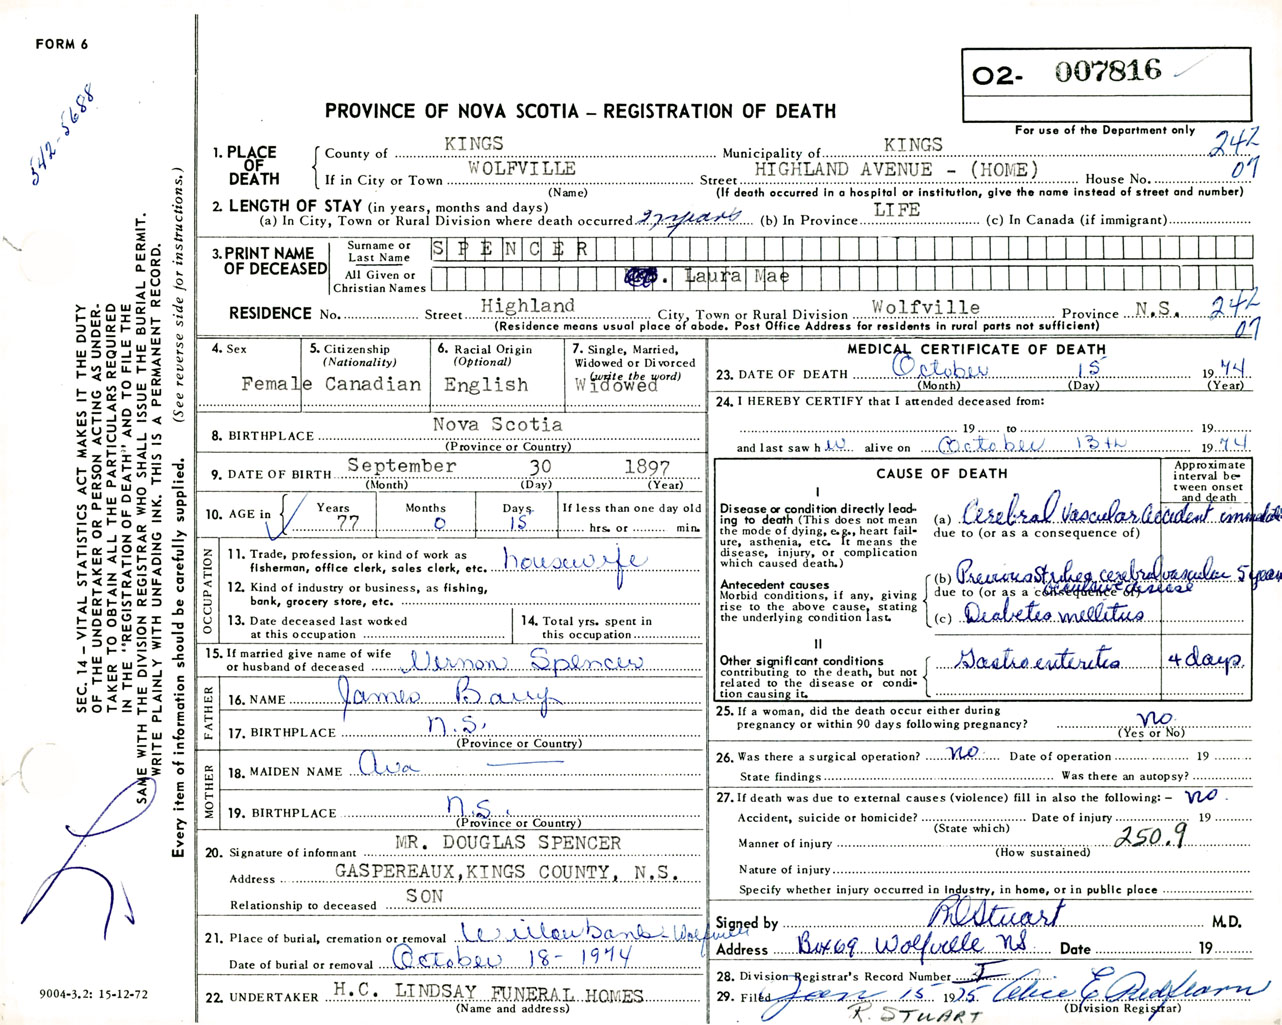 FORM 6
542-5688
O2- 007816
For use of the Department only
PROVINCE OF NOVA SCOTIA – REGISTRATION OF DEATH
1. PLACE OF DEATH
County of KINGS Municipality of KINGS 242
If in City or Town WOLFVILLE Street HIGHLAND AVENUE - (HOME) House No. 07
(Name) (If death occurred in a hospital or institution, give the name instead of street and number)
2. LENGTH OF STAY (in years, months and days)
(a) In City, Town or Rural Division where death occurred 27 years (b) In Province LIFE (c) In Canada (if immigrant)
3. PRINT NAME OF DECEASED
Surname or Last Name SPENCER
All Given or Christian Names Laura Mae
RESIDENCE No. Street Highland City, Town or Rural Division Wolfville Province N.S. 242
(Residence means usual place of abode. Post Office Address for residents in rural parts not sufficient) 07
4. Sex
Female
5. Citizenship
(Nationality)
Canadian
6. Racial Origin
(Optional)
English
7. Single, Married,
Widowed or Divorced
(write the word)
Widowed
8. BIRTHPLACE Nova Scotia
(Province or Country)
9. DATE OF BIRTH September 30 1897
(Month) (Day) (Year)
10. AGE in Years Months Days If less than one day old
77 0 15 hrs. or min.
OCCUPATION
11. Trade, profession, or kind of work as
fisherman, office clerk, sales clerk, etc. housewife
12. Kind of industry or business, as fishing,
bank, grocery store, etc.
13. Date deceased last worked
at this occupation
14. Total yrs. spent in
this occupation
15. If married give name of wife
or husband of deceased Vernon Spencer
FATHER
16. NAME James Barry
17. BIRTHPLACE N.S.
(Province or Country)
MOTHER
18. MAIDEN NAME Ava
19. BIRTHPLACE N.S.
(Province or Country)
20. Signature of informant MR. DOUGLAS SPENCER
Address GASPEREAUX, KINGS COUNTY, N.S.
Relationship to deceased SON
21. Place of burial, cremation or removal Willowbank Wolfville
Date of burial or removal October 18- 1974
22. UNDERTAKER H.C. LINDSAY FUNERAL HOMES
(Name and address)
MEDICAL CERTIFICATE OF DEATH
23. DATE OF DEATH October 15 1974
(Month) (Day) (Year)
24. I HEREBY CERTIFY that I attended deceased from:
19 to 19
and last saw her alive on October 13th 1974
CAUSE OF DEATH
Approximate
interval be-
tween onset
and death
I
Disease or condition directly lead-
ing to death (This does not mean
the mode of dying, e.g., heart fail-
ure, asthenia, etc. It means the
disease, injury, or complication
which caused death.)
(a) Cerebral Vascular Accident immediate
due to (or as a consequence of)
Antecedent causes
Morbid conditions, if any, giving
rise to the above cause, stating
the underlying condition last.
(b) Previous Strokes cerebral vascular 5 years
due to (or as a consequence of) disease
(c) Diabetes mellitus
II
Other significant conditions
contributing to the death, but not
related to the disease or condi-
tion causing it.
Gastroenteritis 4 days.
25. If a woman, did the death occur either during
pregnancy or within 90 days following pregnancy? no
(Yes or No)
26. Was there a surgical operation? no Date of operation 19
State findings Was there an autopsy?
27. If death was due to external causes (violence) fill in also the following: – no.
Accident, suicide or homicide? Date of injury 19
(State which)
Manner of injury 250.9
(How sustained)
Nature of injury
Specify whether injury occurred in Industry, in home, or in public place
Signed by R Stuart M.D.
Address Box 69 Wolfville NS Date 19
28. Division Registrar's Record Number I
29. Filed Jan 15 1975 Alice E Redfearn
R. STUART (Division Registrar)
SEC. 14 – VITAL STATISTICS ACT MAKES IT THE DUTY
OF THE UNDERTAKER OR PERSON ACTING AS UNDER-
TAKER TO OBTAIN ALL THE PARTICULARS REQUIRED
IN THE "REGISTRATION OF DEATH" AND TO FILE THE
SAME WITH THE DIVISION REGISTRAR WHO SHALL ISSUE THE BURIAL PERMIT.
WRITE PLAINLY WITH UNFADING INK. THIS IS A PERMANENT RECORD.
Every item of information should be carefully supplied. (See reverse side for instructions.)
9004-3.2: 15-12-72